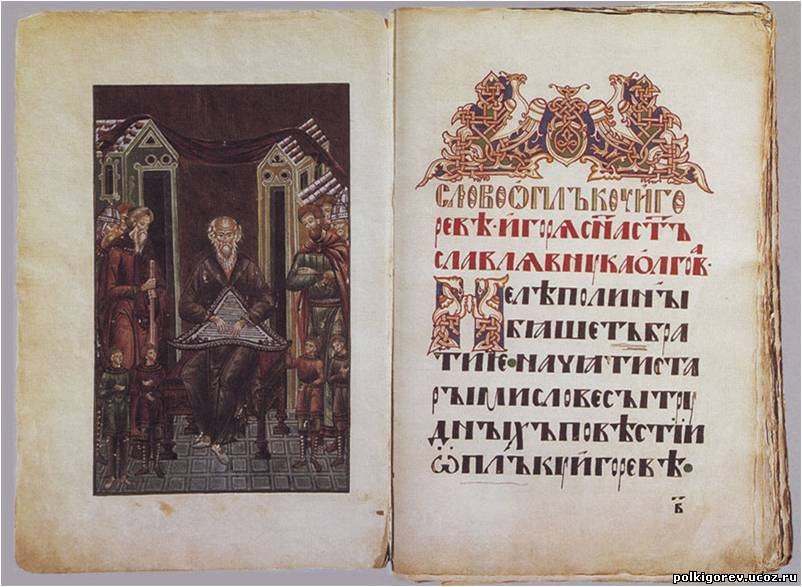 СЛОВОѠПЛЪКОУИГО
РЕВѢ·ИГОРѦСН҃АСТ҃Ъ
СЛАВЛѦВНУКАОЛГОВА·
НЕЛѢПОЛИНЫ
БꙖШЕТЪБРА
ТИѤ·НАЧꙖТИСТА
РЫМИСЛОВЕСЫТРУ
ДНЫХЪПОВѢСТІЙ
ѠПЛЪКУИГОРЕВѢ·
в҃
polkigorev.ucoz.ru